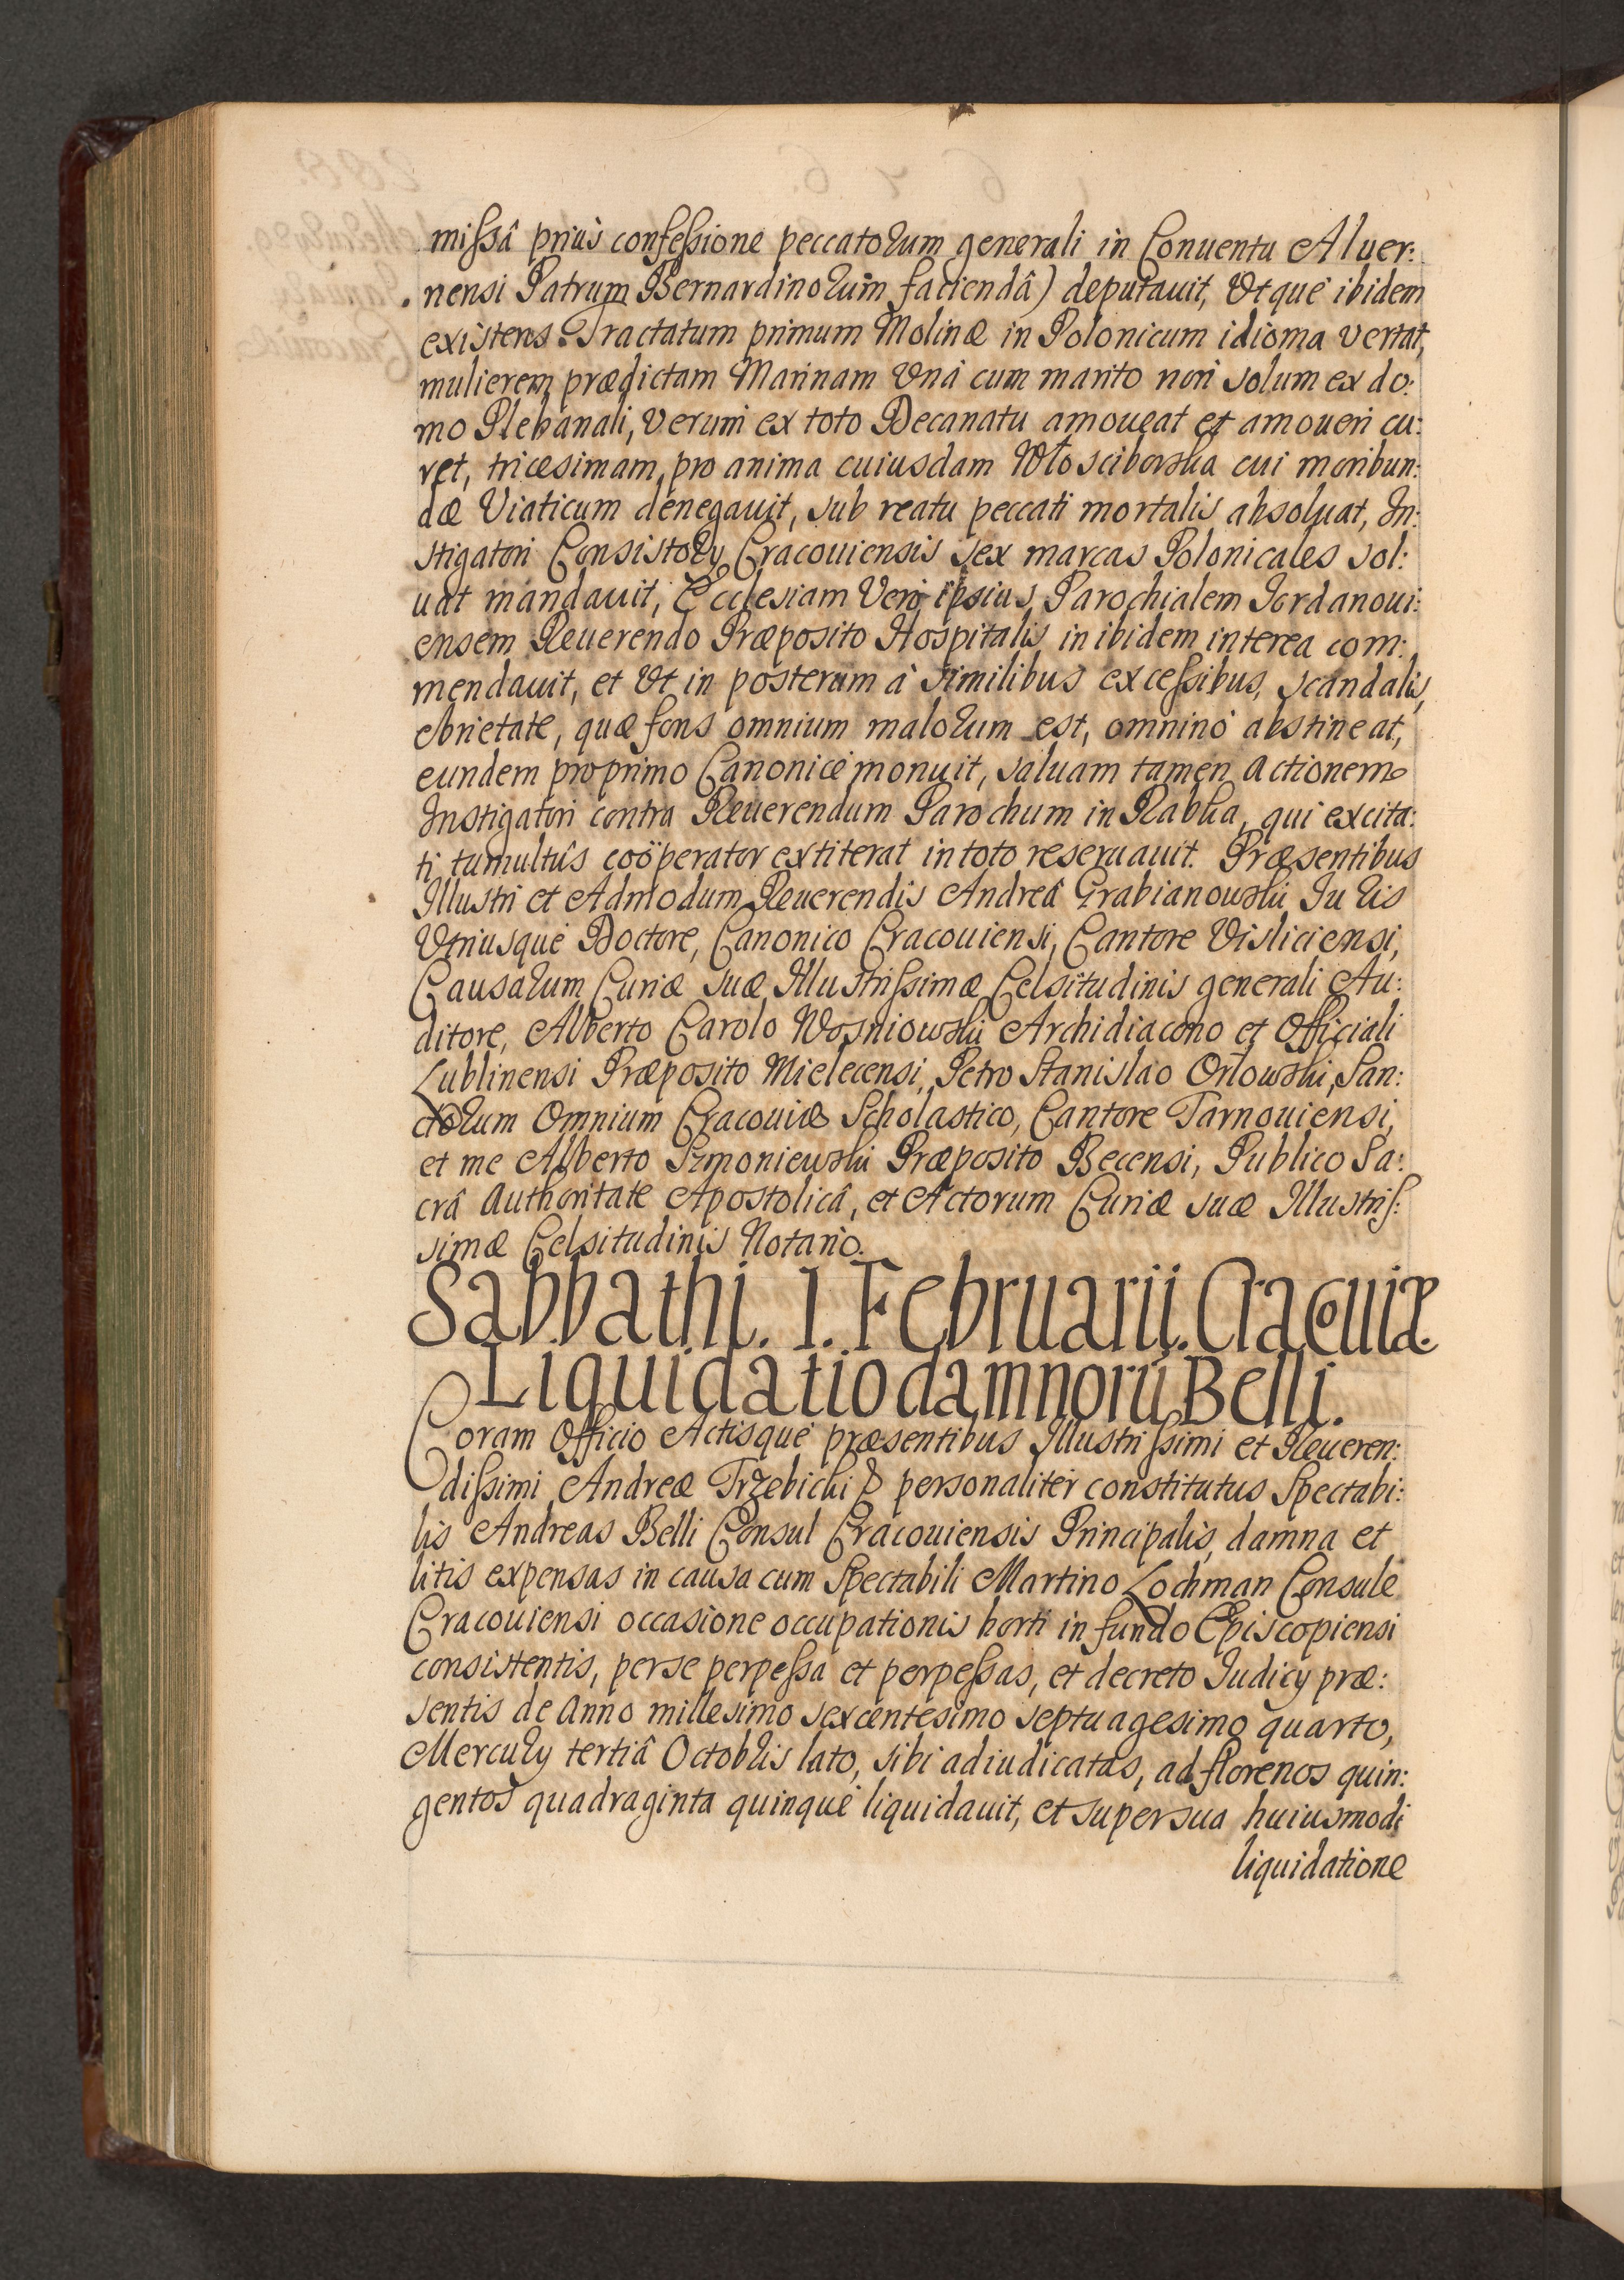 missâ priùs confessione peccatorum generali in Conuentu Aluer:
nensi Patrum Bernardinorum faciendâ) deputauit, Vtque ibidem
existens Tractatum primum Molinæ in Polonicum idioma vertat,
mulierem prædictam Marinam Vnà cum marito non solum ex do:
mo Plebanali, Verum ex toto Decanatu amoueat et amoueri cu:
ret, tricesimam pro anima cuiusdam Włosciborska cui moribun:
dæ Viaticum denegauit, sub reatu peccati mortalis absoluat, In:
stigatori Consistorÿ Cracouiensis sex marcas Polonicales sol:
uat mandauit, Ecclesiam Verò ipsius Parochialem Iordanoui:
ensem Reuerendo Præposito Hospitalis in ibidem interea com:
mendauit, et Vt in posterum à similibus excessibus, scandalis,
ebrietate, quæ fons omnium malorum est, omninò abstineat,
eundem pro primo Canonicè monuit, saluam tamen actionem
Instigatori contra Reuerendum Parochum in Rabka, qui excita:
ti tumultûs coöperator extiterat in toto reseruauit. Præsentibus
Illustri et Admodum Reuerendis Andreâ Grabianowski Iuris
Vtriusque Doctore, Canonico Cracouiensi, Cantore Visliciensi,
Causarum Curiæ suæ Illustrissimæ Celsitudinis generali Au:
ditore, Alberto Carolo Wosniowski Archidiacono et Officiali
Lublinensi Præposito Mielecensi, Petro Stanislao Orłowski, San:
ctorum Omnium Cracouiæ Scholastico, Cantore Tarnouiensi,
et me Alberto Szmoniewski Præposito Becensi, Publico Sa:
crâ Authoritate Apostolicâ, et Actorum Curiæ suæ Illustris:
simæ Celsitudinis Notario.
Sabbathi. 1. Februarii. Cracouiæ.
Liquidatio damnorū Belli.
Coram Officio Actisque præsentibus Illustrissimi et Reueren:
dissimi Andreæ Trzebicki & personaliter constitutus Spectabi:
lis Andreas Belli Consul Cracouiensis Principalis, damna et
litis expensas in causa cum Spectabili Martino Lochman Consule
Cracouiensi occasione occupationis horti in fundo Episcopiensi
consistentis, per se perpessa et perpessas, et decreto Iudicÿ præ:
sentis de Anno millesimo sexcentesimo septuagesimo quarto,
Mercurÿ tertiâ Octobris lato, sibi adiudicatas, ad florenos quin:
gentos quadraginta quinque liquidauit, et super sua huiusmodi
liquidatione